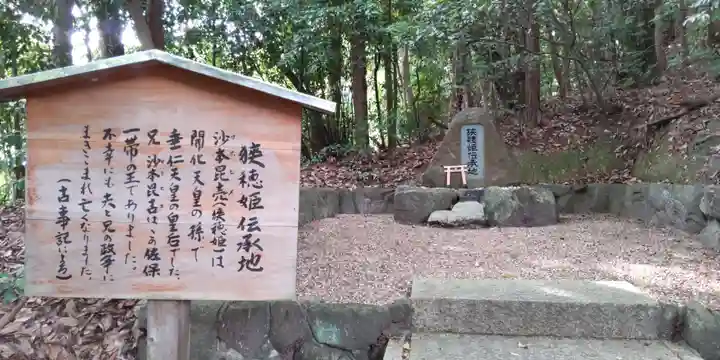 狭穂姫伝承地
沙本毘売(狭穂姫)は
さほびめ
開化天皇の孫で
垂仁天皇の皇后でした。
兄 沙本毘古はこの佐保
一帯の王でありました。
不幸にも夫と兄の政争に
まきこまれ亡くなりました。
(古事記による)
狭穂姫伝承地